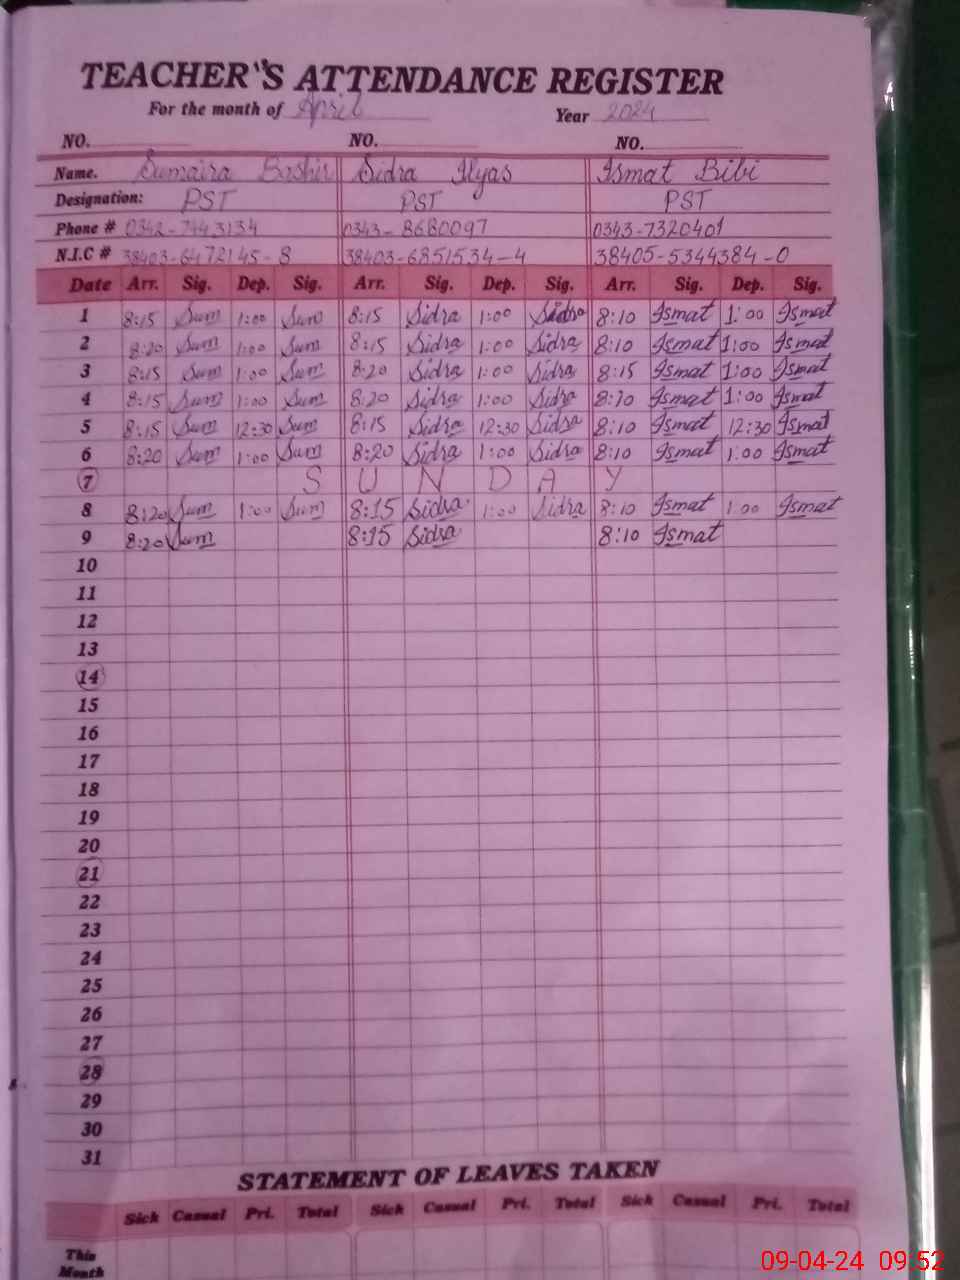 TEACHER'S ATTENDANCE REGISTER
For the month of April Year 2024
NO. NO. NO.
Name. Sumaira Bashir Sidra Ilyas Ismat Bibi
Designation: PST PST PST
Phone # 0342-7443134 0343-8680097 0343-7320401
N.I.C # 38403-6472145-8 38403-6851534-4 38405-5344384-0
Date Arr. Sig. Dep. Sig. Arr. Sig. Dep. Sig. Arr. Sig. Dep. Sig.
1 8:15 Sum 1:00 Sum 8:15 Sidra 1:00 Sidra 8:10 Ismat 1:00 Ismat
2 8:20 Sum 1:00 Sum 8:15 Sidra 1:00 Sidra 8:10 Ismat 1:00 Ismat
3 8:15 Sum 1:00 Sum 8:20 Sidra 1:00 Sidra 8:15 Ismat 1:00 Ismat
4 8:15 Sum 1:00 Sum 8:20 Sidra 1:00 Sidra 8:10 Ismat 1:00 Ismat
5 8:15 Sum 12:30 Sum 8:15 Sidra 12:30 Sidra 8:10 Ismat 12:30 Ismat
6 8:20 Sum 1:00 Sum 8:20 Sidra 1:00 Sidra 8:10 Ismat 1:00 Ismat
7 S U N D A Y
8 8:20 Sum 1:00 Sum 8:15 Sidra 1:00 Sidra 8:10 Ismat 1:00 Ismat
9 8:20 Sum 8:15 Sidra 8:10 Ismat
10
11
12
13
14
15
16
17
18
19
20
21
22
23
24
25
26
27
28
29
30
31
STATEMENT OF LEAVES TAKEN
Sick Casual Pri. Total Sick Casual Pri. Total Sick Casual Pri. Total
This
Month
09-04-24 09:52